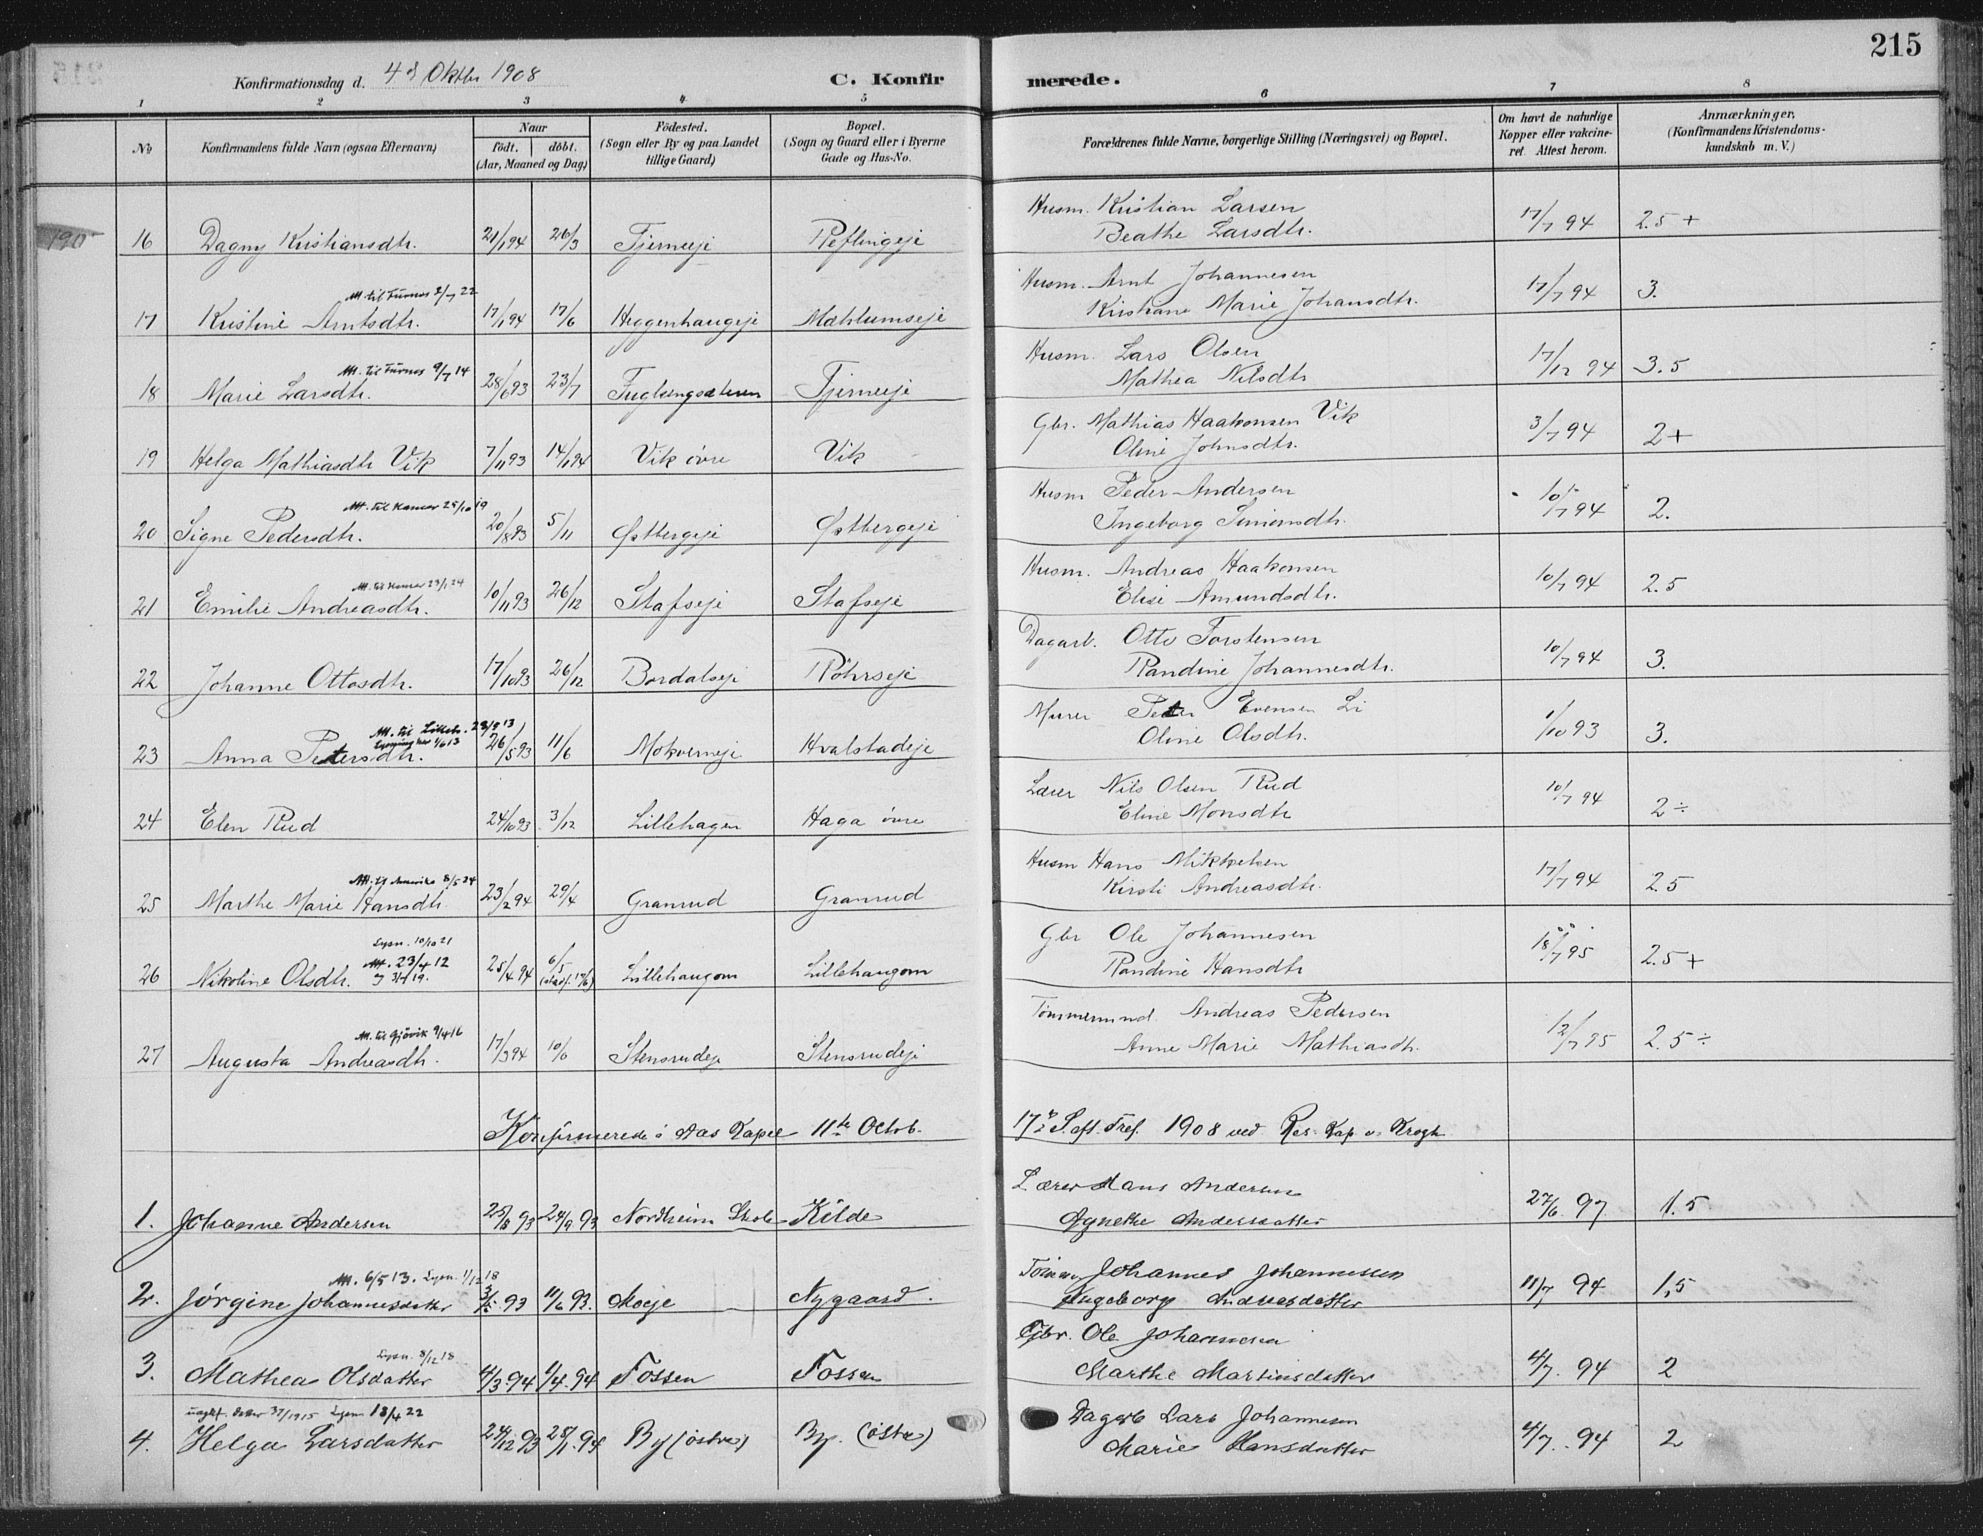 215
Konfirmationsdag d. 4d Oktbr 1908 C. Konfirmerede.
1 2 3 4 5 6 7 8
No Konfirmandens fulde Navn (ogsaa Efternavn) Naar født. døbt. (Aar, Maaned og Dag) Fødested. (Sogn eller By og paa Landet tillige Gaard) Bopæl. (Sogn og Gaard eller i Byerne Gade og Hus-No. Forældrenes fulde Navne, borgerlige Stilling (Næringsvei) og Bopæl. Om havt de naturlige Kopper eller vaccineret. Attest herom. Anmærkninger, (Konfirmandens Kristendomskundskab m. V.)
190
Husm. Kristian Larsen
16 Dagny Kristiansdtr. 21/1 94 26/3 Tjerneeje Reflingeje Beathe Larsdtr. 17/7 94 2.5 +
Att. til Furnes 2/7 22 Husm. Arnt Johannesen
17 Kristine Arntsdtr. 17/1 94 17/6 Heggenhaugeje Mæhlumseje Kristiane Marie Johansdtr. 17/7 94 3.
Att. til Furnes 9/7 14 Husm. Lars Olsen
18 Marie Larsdtr. 28/6 93 23/7 Fuglsengsæteren Tjerneeje Mathea Nilsdtr 17/12 94 3.5
Gbr. Mathias Haakonsen Vik
19 Helga Mathiasdtr Vik 7/11 93 14/1 94 Vik øvre Vik Oline Johnsdtr. 3/7 94 2+
Att. til Hamar 25/10 19 Husm Peder Andersen
20 Signe Pedersdtr. 20/8 93 5/11 Østbergeje Østbergeje Ingeborg Simensdtr. 10/7 94 2.
Att. til Hamar 23/1 24 Husm. Andreas Haakonsen
21 Emilie Andreasdtr. 10/11 93 26/12 Stafseje Stafseje Elise Amundsdtr. 10/7 94 2.5
Dagarb. Otto Torstensen
22 Johanne Ottosdtr. 17/10 93 26/12 Bordalseje Røhrseje Randine Johannesdtr. 10/7 94 3.
Att. til Lilleh. 28/5 13 Murer Peter Evensen Li
23 Anna Petersdtr. 26/5 93 11/6 Mokverneje Hvalstadeje Oline Olsdtr. 1/10 93 3.
Lærer Nils Olsen Rud
24 Elen Rud 24/10 93 3/12 Lillehagen Haga øvre Eline Monsdtr 10/7 94 2 ÷
Att. til Amerika 8/5 24 Husm Hans Mikkelsen
25 Marthe Marie Hansdtr 23/2 94 29/4 Granrud Granrud Kirsti Andreasdtr. 17/7 94 2.5
Lysn. 10/10 21 Gbr Ole Johannesen
26 Nikoline Olsdtr. Att. 23/4 12 og 3/4 19. 25/4 94 6/5 (stadf. 17/6) Lillehaugom Lillehaugom Randine Hansdtr 18/7 95 2.5 +
Att. til Gjøvik 9/4 16 Tømmermnd. Andreas Pedersen
27 Augusta Andreasdtr. 17/3 94 10/6 Stensrudeje Stensrudeje Anne Marie Mathiasdtr. 12/7 95 2.5 ÷
Konfirmerede i Aas Kapel 11te Octob. 17de S. eft. Tref. 1908 ved Res. Kap. v. Krogh
Lærer Hans Andersen
1. Johanne Andersen 25/8 93 24/9 93 Nordheim Skole Kilde Agnethe Andersdatter 27/6 97 1.5
Att. 6/5 13. Lysn. 1/12 18 Tømm. Johannes Johannessen
2. Jørgine Johannesdatter 3/5 93 11/6 93. Moeje Nygaard. Ingeborg Andreasdatter 11/7 94 1,5
Lysn. 8/12 18 Gbr. Ole Johannesen
3. Mathea Olsdatter 4/3 94 1/4 94 Fossen Fossen Marthe Martinsdatter 4/7 94 2
Lysn. 18/4 22 Dagarb Lars Johannesen
4. Helga Larsdatter 24/12 93 28/1 94 By (østre) By. (østre) Marie Hansdatter 4/7 94 2